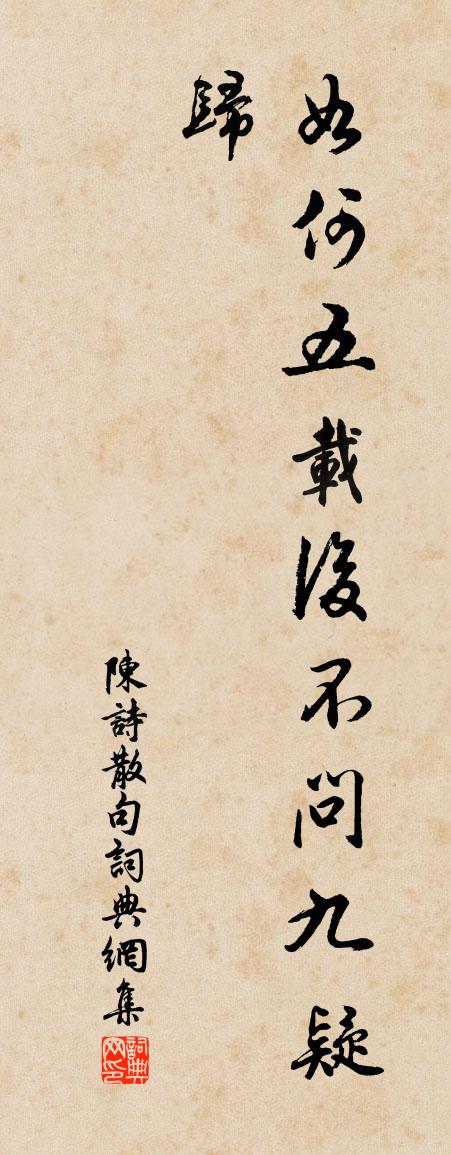 如何五載後不問九疑
歸
陳詩散句詞典網集
詞典网印